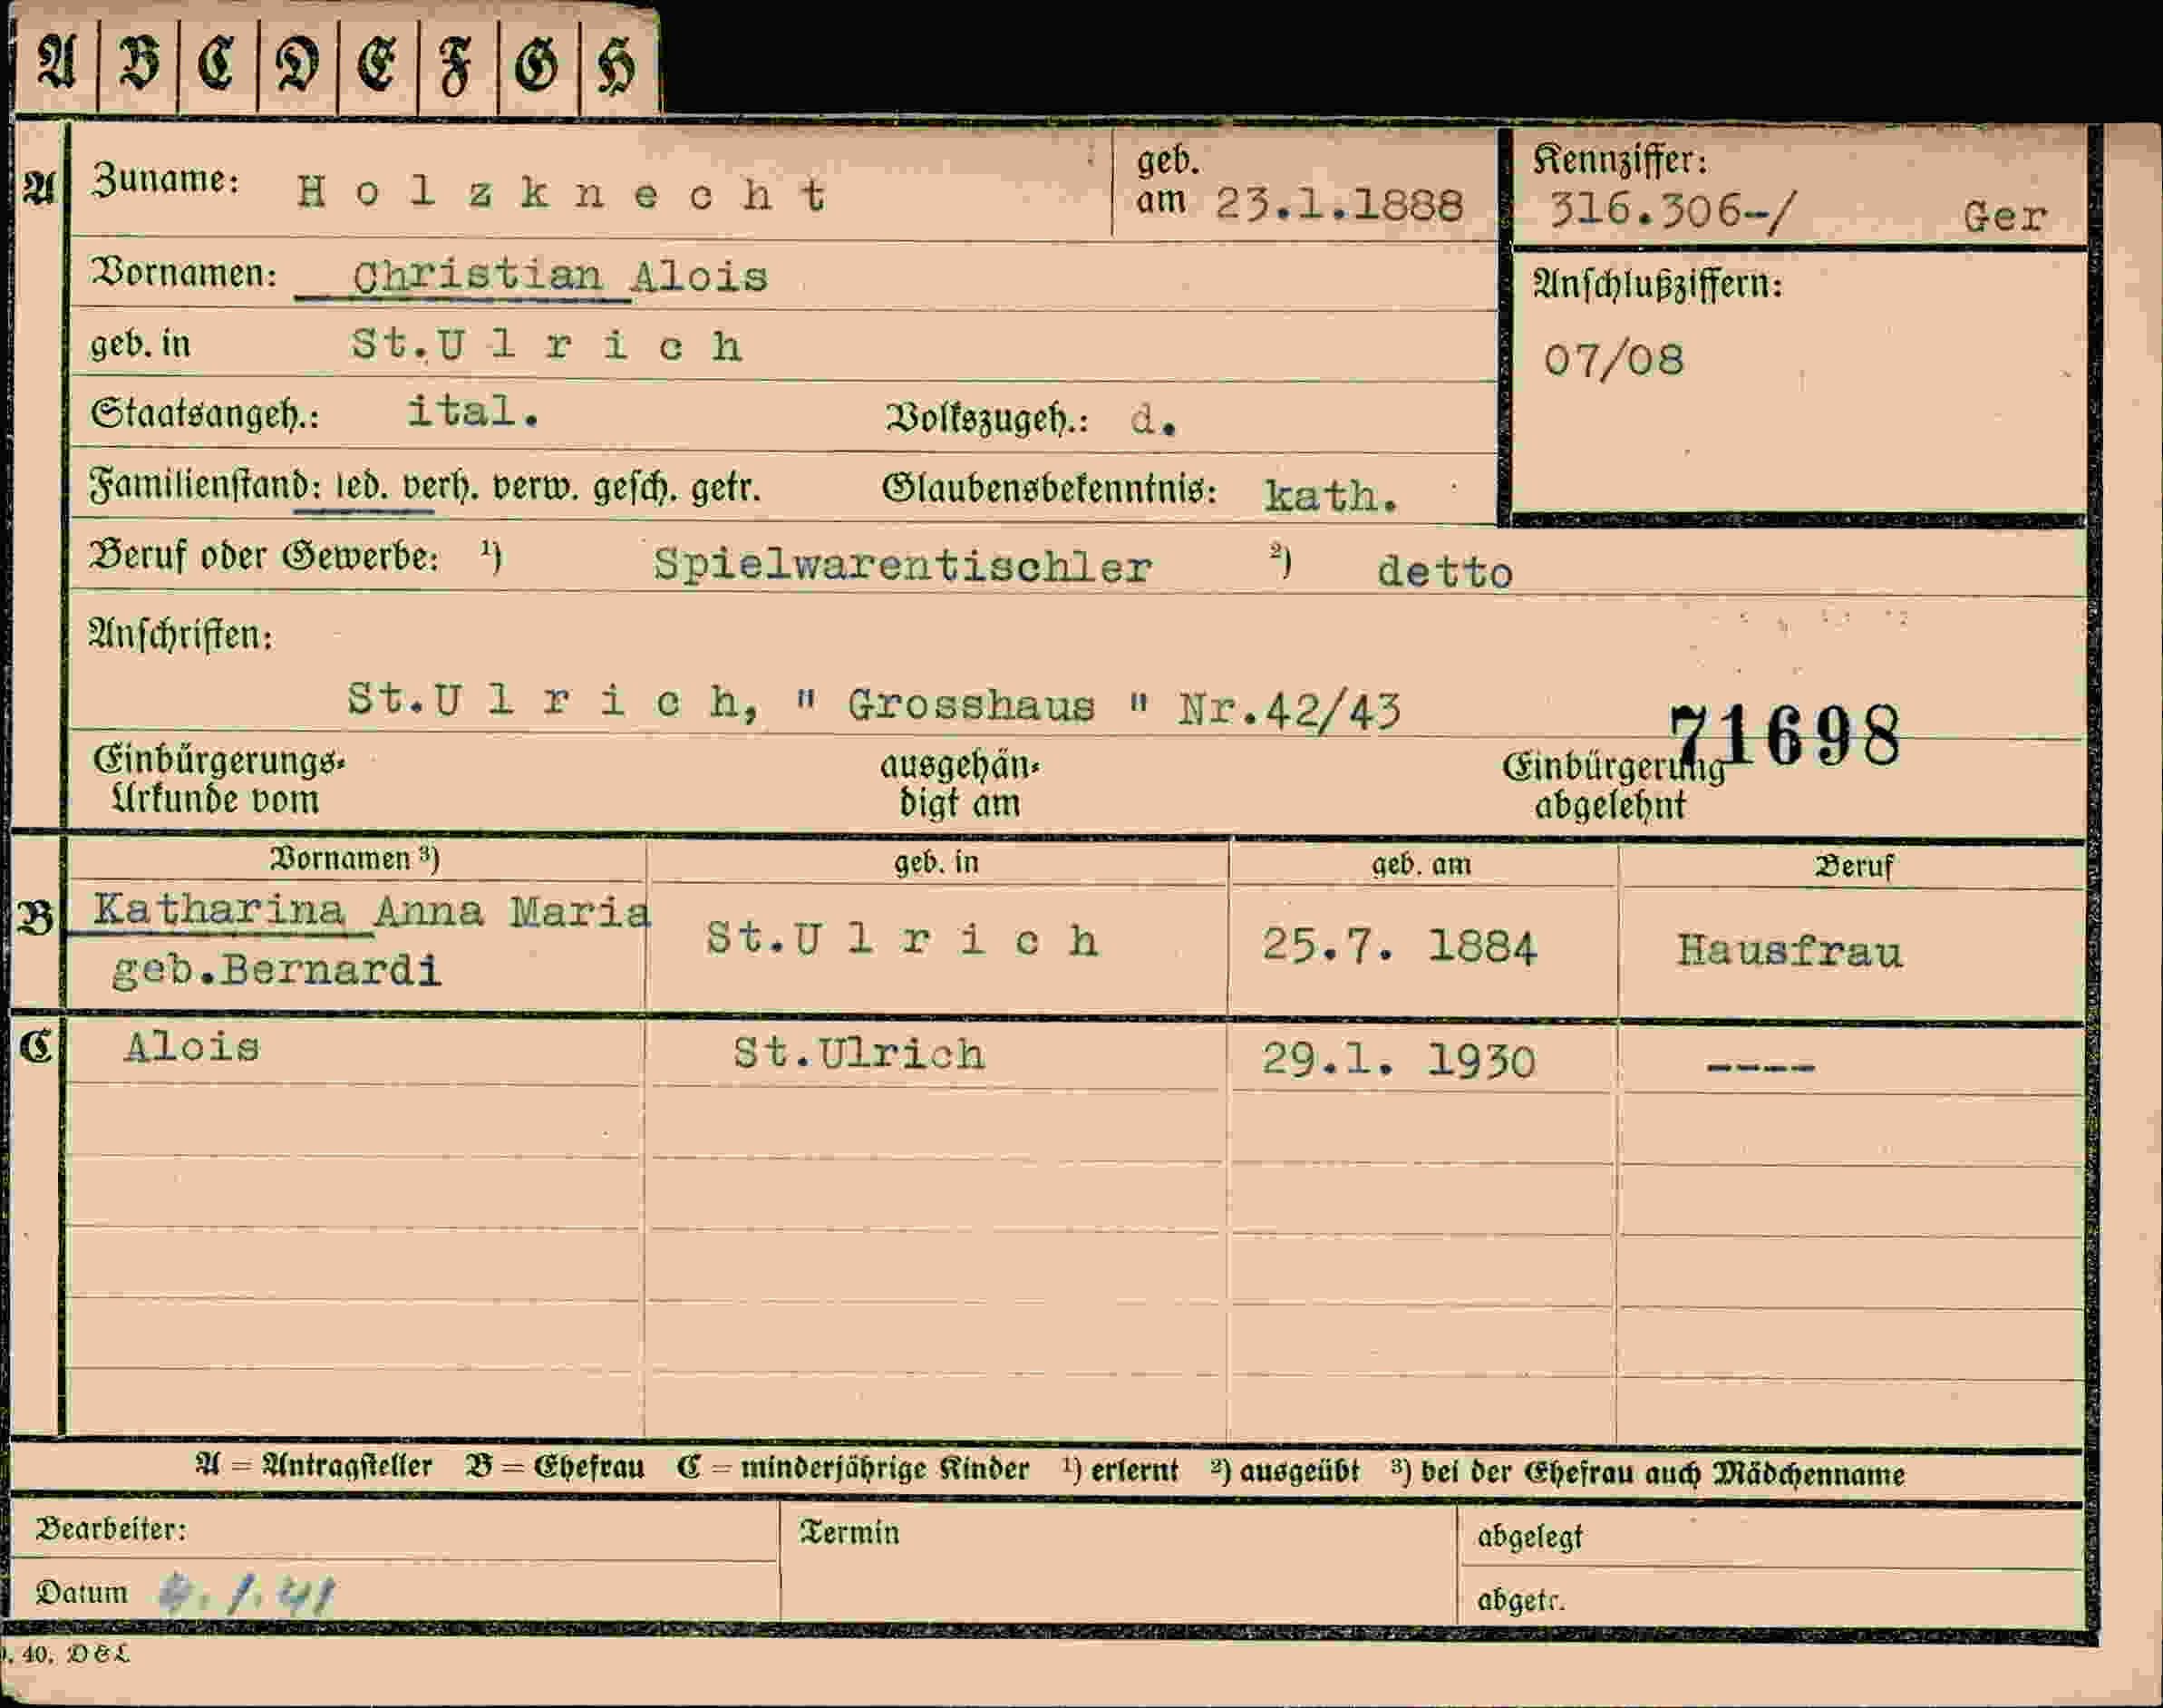 A B C D E F G H
A Zuname: Holzknecht geb. am 23.1.1888 Kennziffer: 316.306-/ Ger
Vornamen: Christian Alois Anschlußziffern:
geb. in St.Ulrich 07/08
Staatsangeh.: ital. Volkszugeh.: d.
Familienstand: led. verh. verw. gesch. getr. Glaubensbekenntnis: kath.
Beruf oder Gewerbe: 1) Spielwarentischler 2) detto
Anschriften:
St.Ulrich, " Grosshaus " Nr.42/43
71698
Einbürgerungs- ausgehän- Einbürgerung
Urkunde vom digt am abgelehnt
Vornamen 3) geb. in geb. am Beruf
B Katharina Anna Maria St.Ulrich 25.7. 1884 Hausfrau
geb.Bernardi
C Alois St.Ulrich 29.1. 1930 ----
A = Antragsteller B = Ehefrau C = minderjährige Kinder 1) erlernt 2) ausgeübt 3) bei der Ehefrau auch Mädchenname
Bearbeiter: Termin abgelegt
Datum 1.41 abgetr.
40. D&L